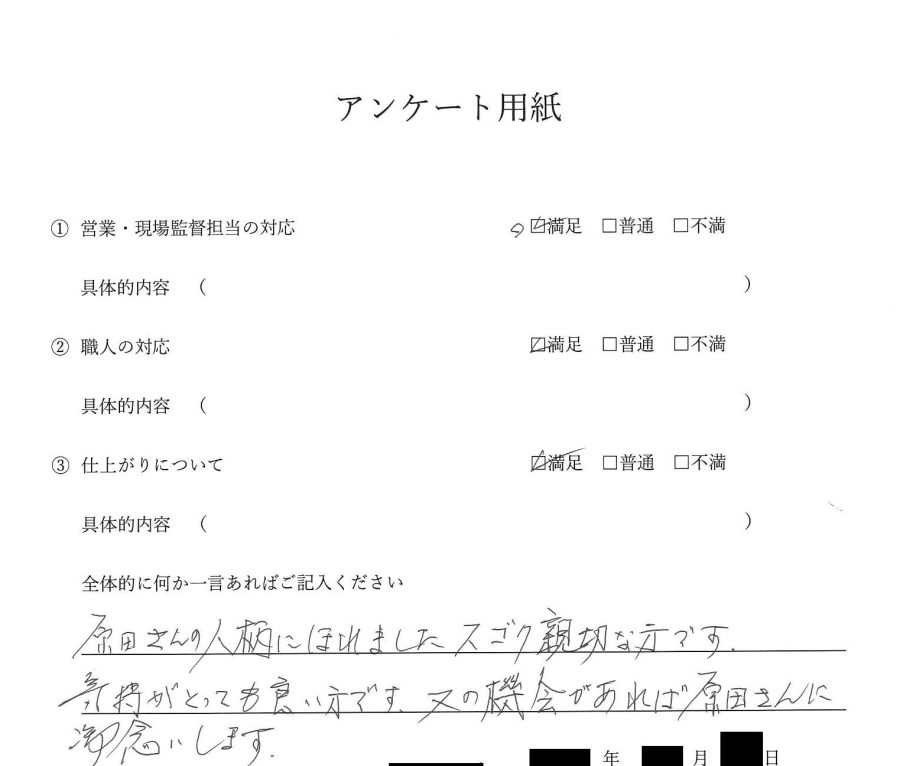 アンケート用紙
① 営業・現場監督担当の対応 ☑満足 □普通 □不満
具体的内容 ( )
② 職人の対応 ☑満足 □普通 □不満
具体的内容 ( )
③ 仕上がりについて ☑満足 □普通 □不満
具体的内容 ( )
全体的に何か一言あればご記入ください
原田さんの人柄にほれました スゴク親切な方です.
気持がとっても良い方です. 又の機会があれば原田さんに
いします.
年 月 日